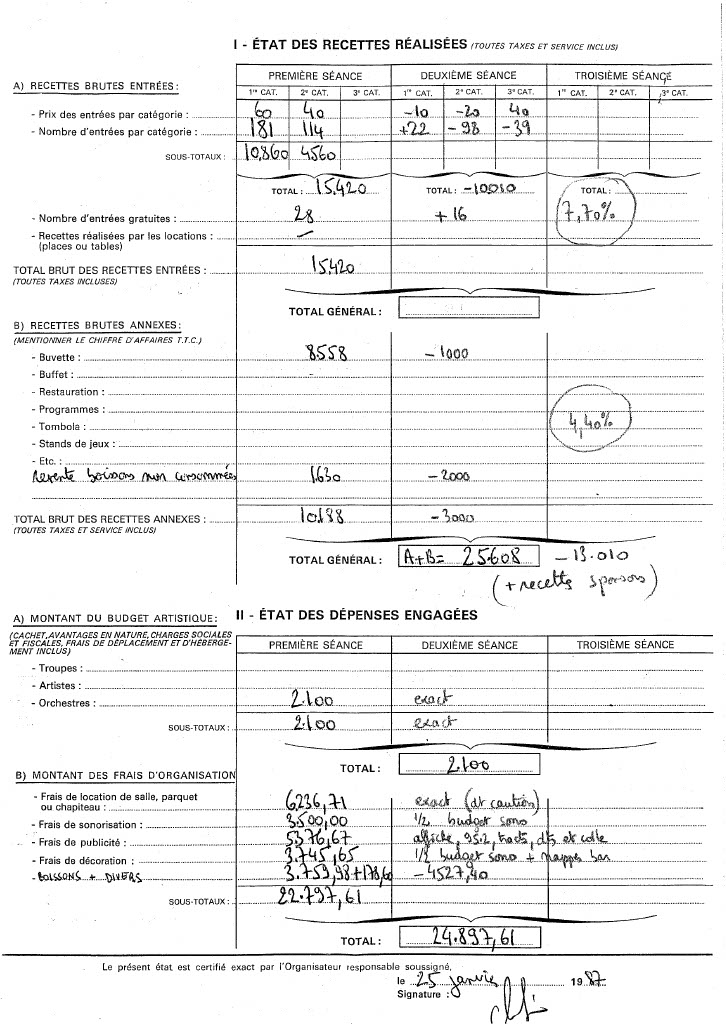 I - ÉTAT DES RECETTES RÉALISÉES (TOUTES TAXES ET SERVICE INCLUS)
A) RECETTES BRUTES ENTRÉES : PREMIÈRE SÉANCE DEUXIÈME SÉANCE TROISIÈME SÉANCE
1re CAT. 2e CAT. 3e CAT. 1re CAT. 2e CAT. 3e CAT. 1re CAT. 2e CAT. 3e CAT.
- Prix des entrées par catégorie : 60 40 -10 -20 40
- Nombre d'entrées par catégorie : 181 114 +22 -98 -39
SOUS-TOTAUX : 10.860 4560
TOTAL : 15.420 TOTAL : -10.010 TOTAL :
- Nombre d'entrées gratuites : 28 + 16 7,70%
- Recettes réalisées par les locations : —
(places ou tables)
TOTAL BRUT DES RECETTES ENTRÉES : 15.420
(TOUTES TAXES INCLUSES)
TOTAL GÉNÉRAL :
B) RECETTES BRUTES ANNEXES :
(MENTIONNER LE CHIFFRE D'AFFAIRES T.T.C.)
- Buvette : 8558 -1000
- Buffet :
- Restauration :
- Programmes :
- Tombola : 4,40%
- Stands de jeux :
- Etc. :
Revente boissons non consommées 1.630 -2000
TOTAL BRUT DES RECETTES ANNEXES : 10.188 -3000
(TOUTES TAXES ET SERVICE INCLUS)
TOTAL GÉNÉRAL : A+B= 25.608 -13.010
(+ recettes sponsors)
II - ÉTAT DES DÉPENSES ENGAGÉES
A) MONTANT DU BUDGET ARTISTIQUE :
(CACHET, AVANTAGES EN NATURE, CHARGES SOCIALES
ET FISCALES, FRAIS DE DÉPLACEMENT ET D'HÉBERGE-
MENT INCLUS)
PREMIÈRE SÉANCE DEUXIÈME SÉANCE TROISIÈME SÉANCE
- Troupes :
- Artistes :
- Orchestres : 2.100 exact
SOUS-TOTAUX : 2.100 exact
TOTAL : 2.100
B) MONTANT DES FRAIS D'ORGANISATION
- Frais de location de salle, parquet
ou chapiteau : 6.236,71 exact (dt caution)
- Frais de sonorisation : 3.500,00 1/2 budget sono
- Frais de publicité : 5.376,67 affiche, 95.2, tracts, dts et colle
- Frais de décoration : 3.745,65 1/2 budget sono + nappes bar
- BOISSONS + DIVERS 3.759,98+178,60 -4527,40
SOUS-TOTAUX : 22.797,61
TOTAL : 24.897,61
Le présent état est certifié exact par l'Organisateur responsable soussigné,
le 25 janvier 1987
Signature :